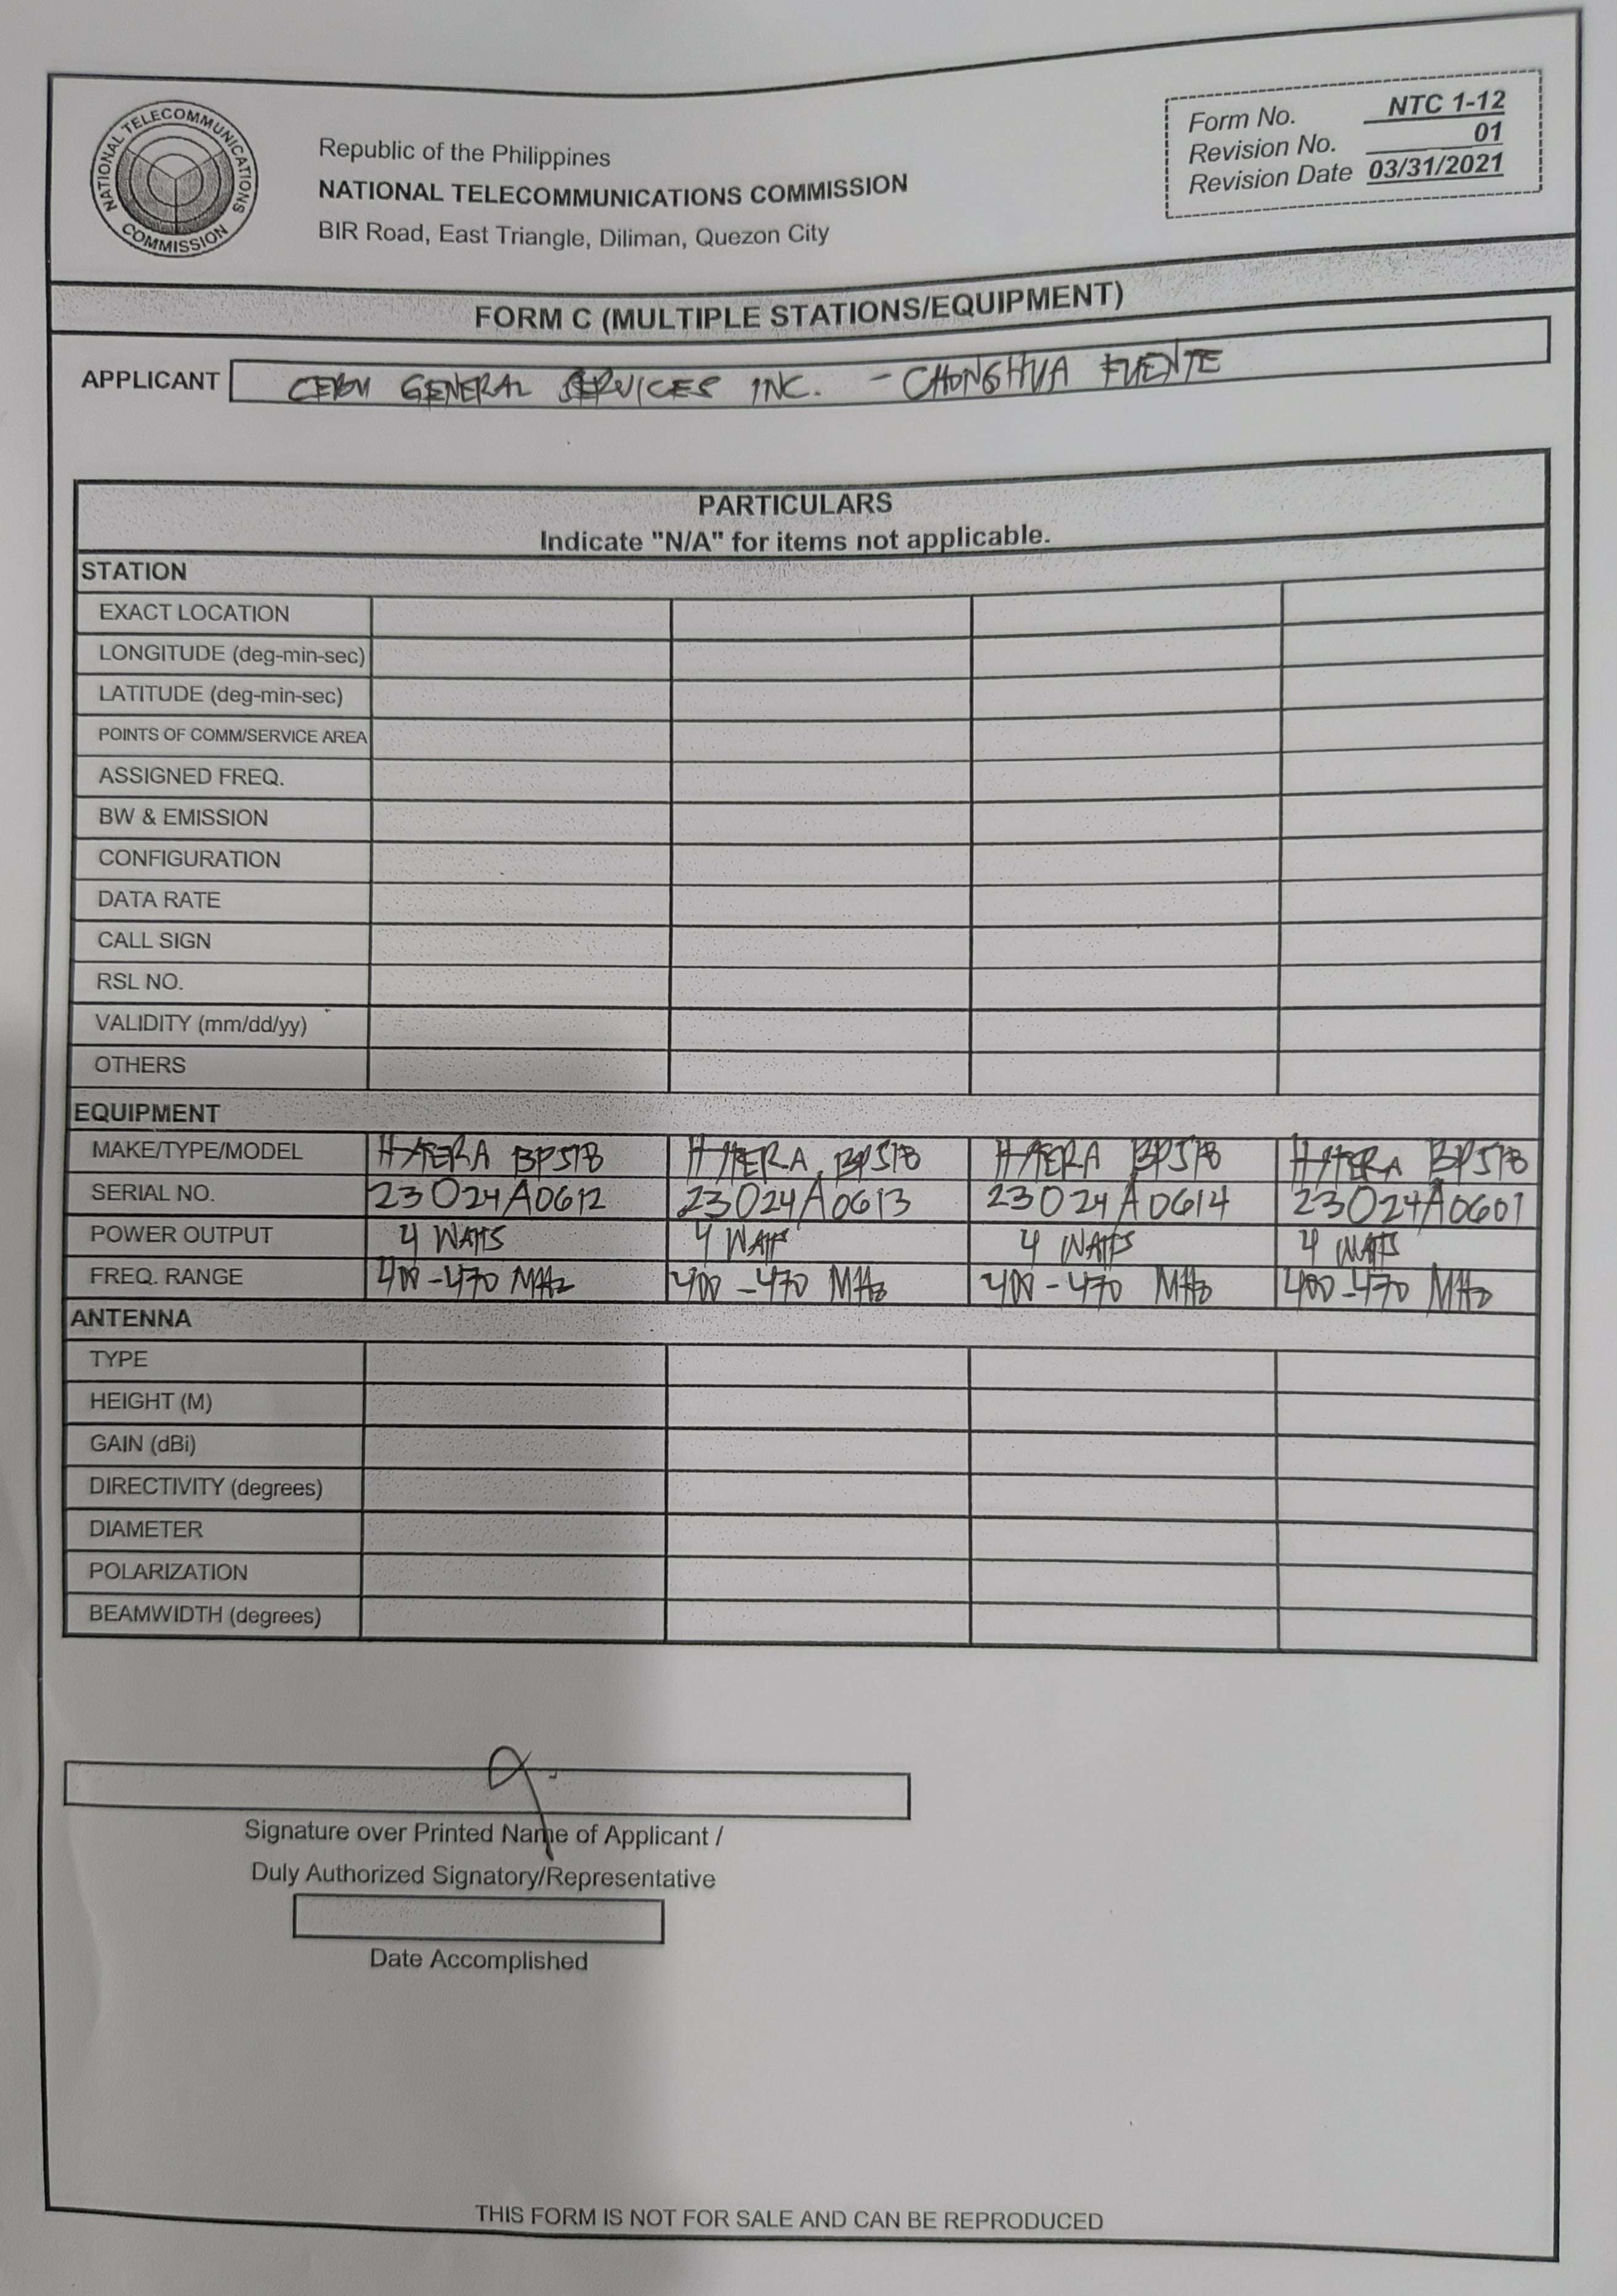 NATIONAL TELECOMMUNICATIONS COMMISSION
Republic of the Philippines
NATIONAL TELECOMMUNICATIONS COMMISSION
BIR Road, East Triangle, Diliman, Quezon City
Form No. NTC 1-12
Revision No. 01
Revision Date 03/31/2021
FORM C (MULTIPLE STATIONS/EQUIPMENT)
APPLICANT CEBU GENERAL SERVICES INC. - CHONGHUA FUENTE
PARTICULARS
Indicate "N/A" for items not applicable.
STATION
EXACT LOCATION
LONGITUDE (deg-min-sec)
LATITUDE (deg-min-sec)
POINTS OF COMM/SERVICE AREA
ASSIGNED FREQ.
BW & EMISSION
CONFIGURATION
DATA RATE
CALL SIGN
RSL NO.
VALIDITY (mm/dd/yy)
OTHERS
EQUIPMENT
MAKE/TYPE/MODEL HYTERA BP518 HYTERA BP518 HYTERA BP518 HYTERA BP518
SERIAL NO. 23024A0612 23024A0613 23024A0614 23024A0601
POWER OUTPUT 4 WATTS 4 WATT 4 WATTS 4 WATTS
FREQ. RANGE 400-470 MHz 400-470 MHz 400-470 MHz 400-470 MHz
ANTENNA
TYPE
HEIGHT (M)
GAIN (dBi)
DIRECTIVITY (degrees)
DIAMETER
POLARIZATION
BEAMWIDTH (degrees)
Signature over Printed Name of Applicant /
Duly Authorized Signatory/Representative
Date Accomplished
THIS FORM IS NOT FOR SALE AND CAN BE REPRODUCED